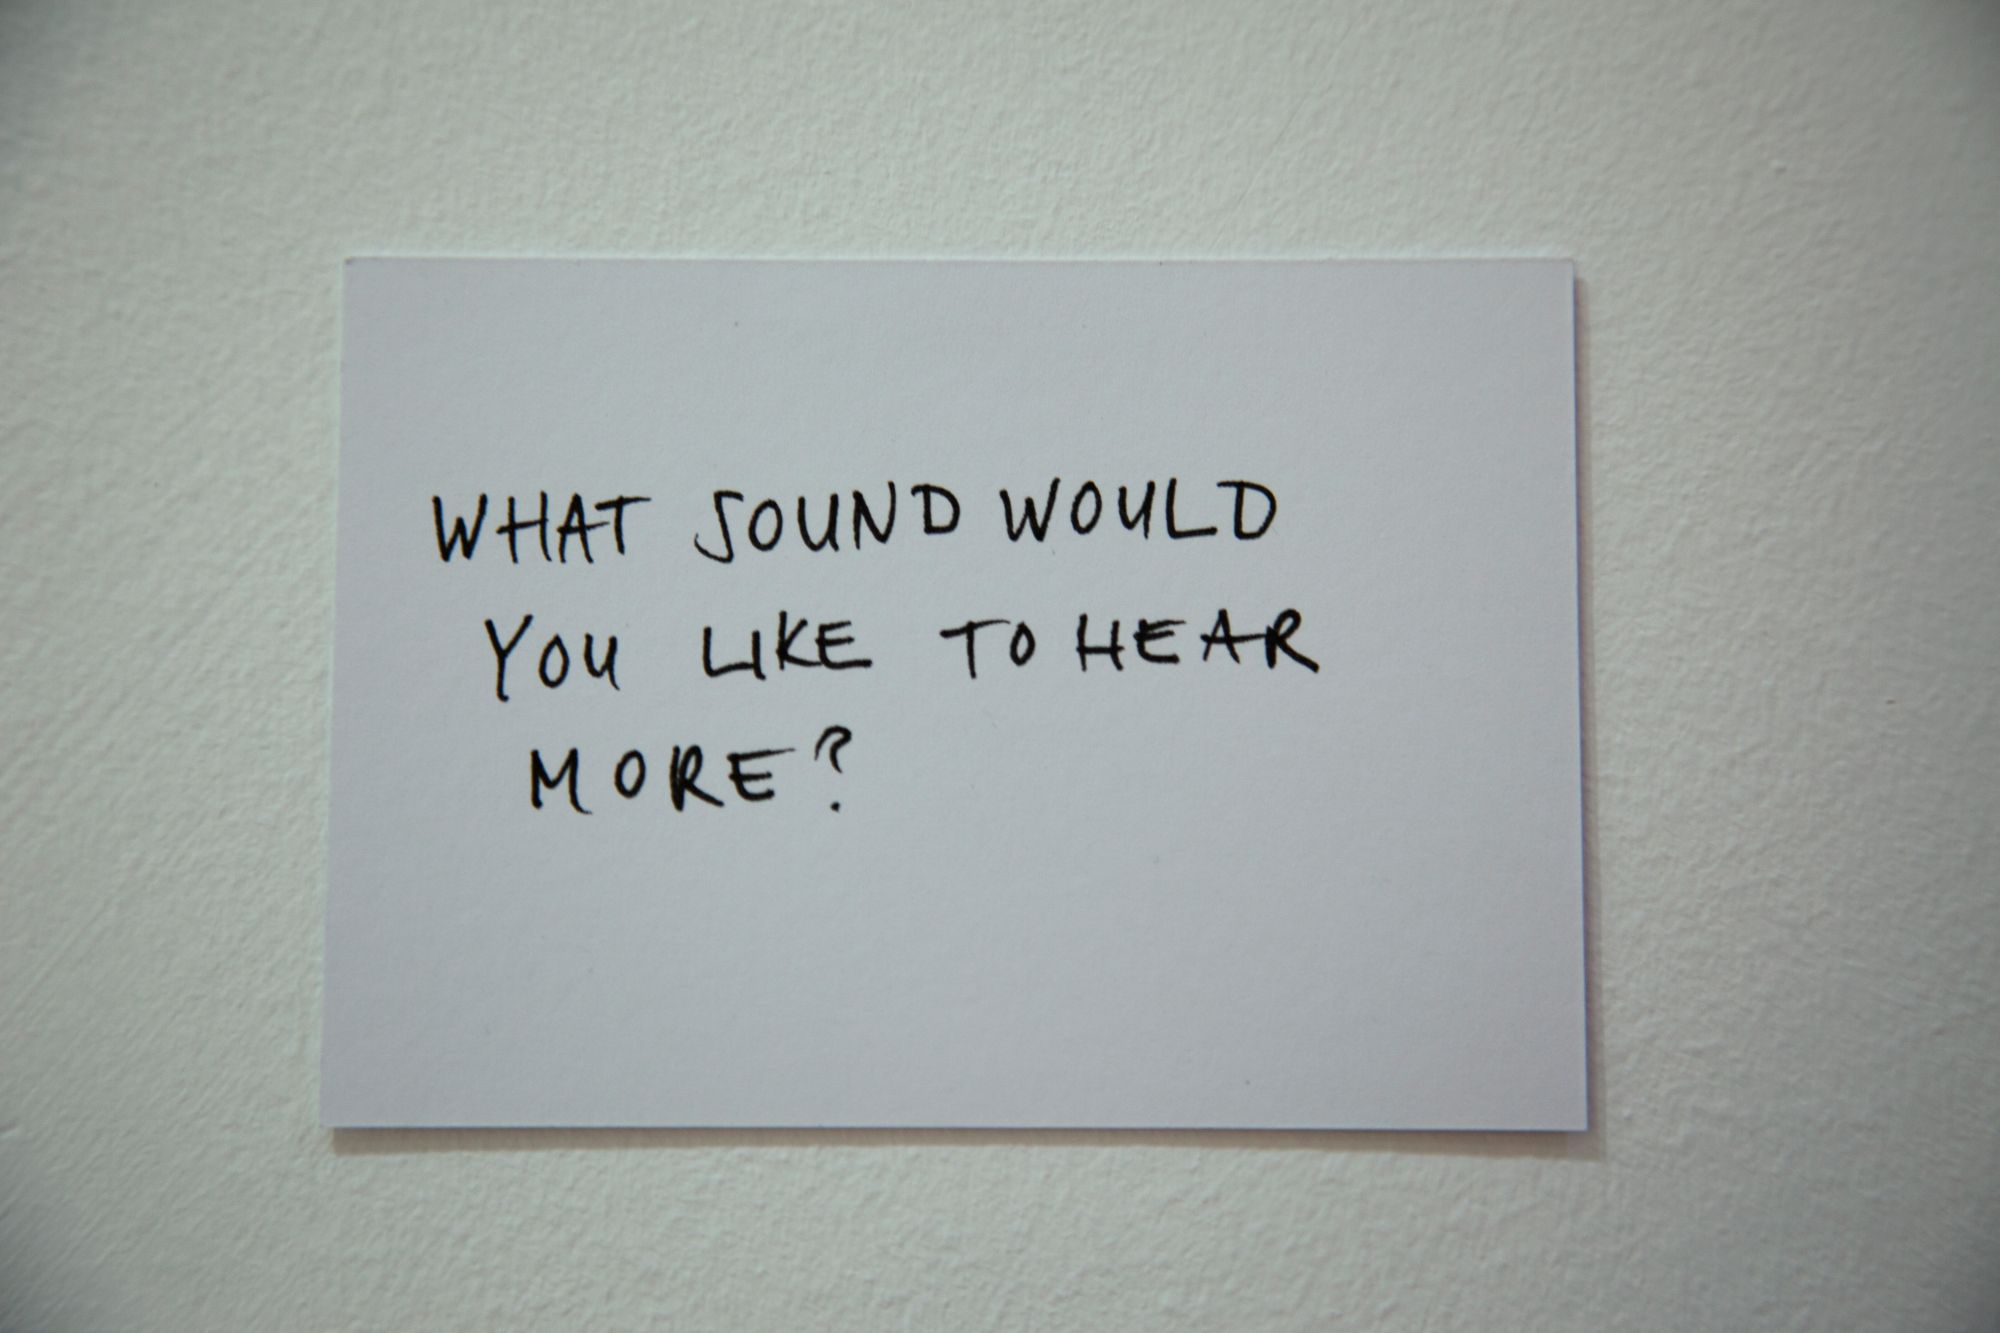 WHAT SOUND WOULD
YOU LIKE TO HEAR
MORE?